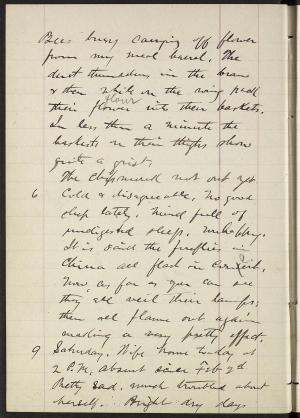 Bees busy carrying off flower
from my meal barrel. They
dust themselves in the bran
& then while on the wing pack
their flour into their baskets.
In less than a minute the
baskets on their thighs show
quite a grist.
The Chipmunk not out yet
6 Cold & disagreeable, no good
sleep lately. Mind full of
undigested sleep. unhappy.
It is said the fireflies in
China all flash in concert.
now, as far as you can see
they all veil their lamps;
then all flame out again
making a very pretty effect.
9 Saturday. Wife home to-day at
2 P.M. absent since Feb 2d
Pretty sad. much troubled about
herself. Bright dry days